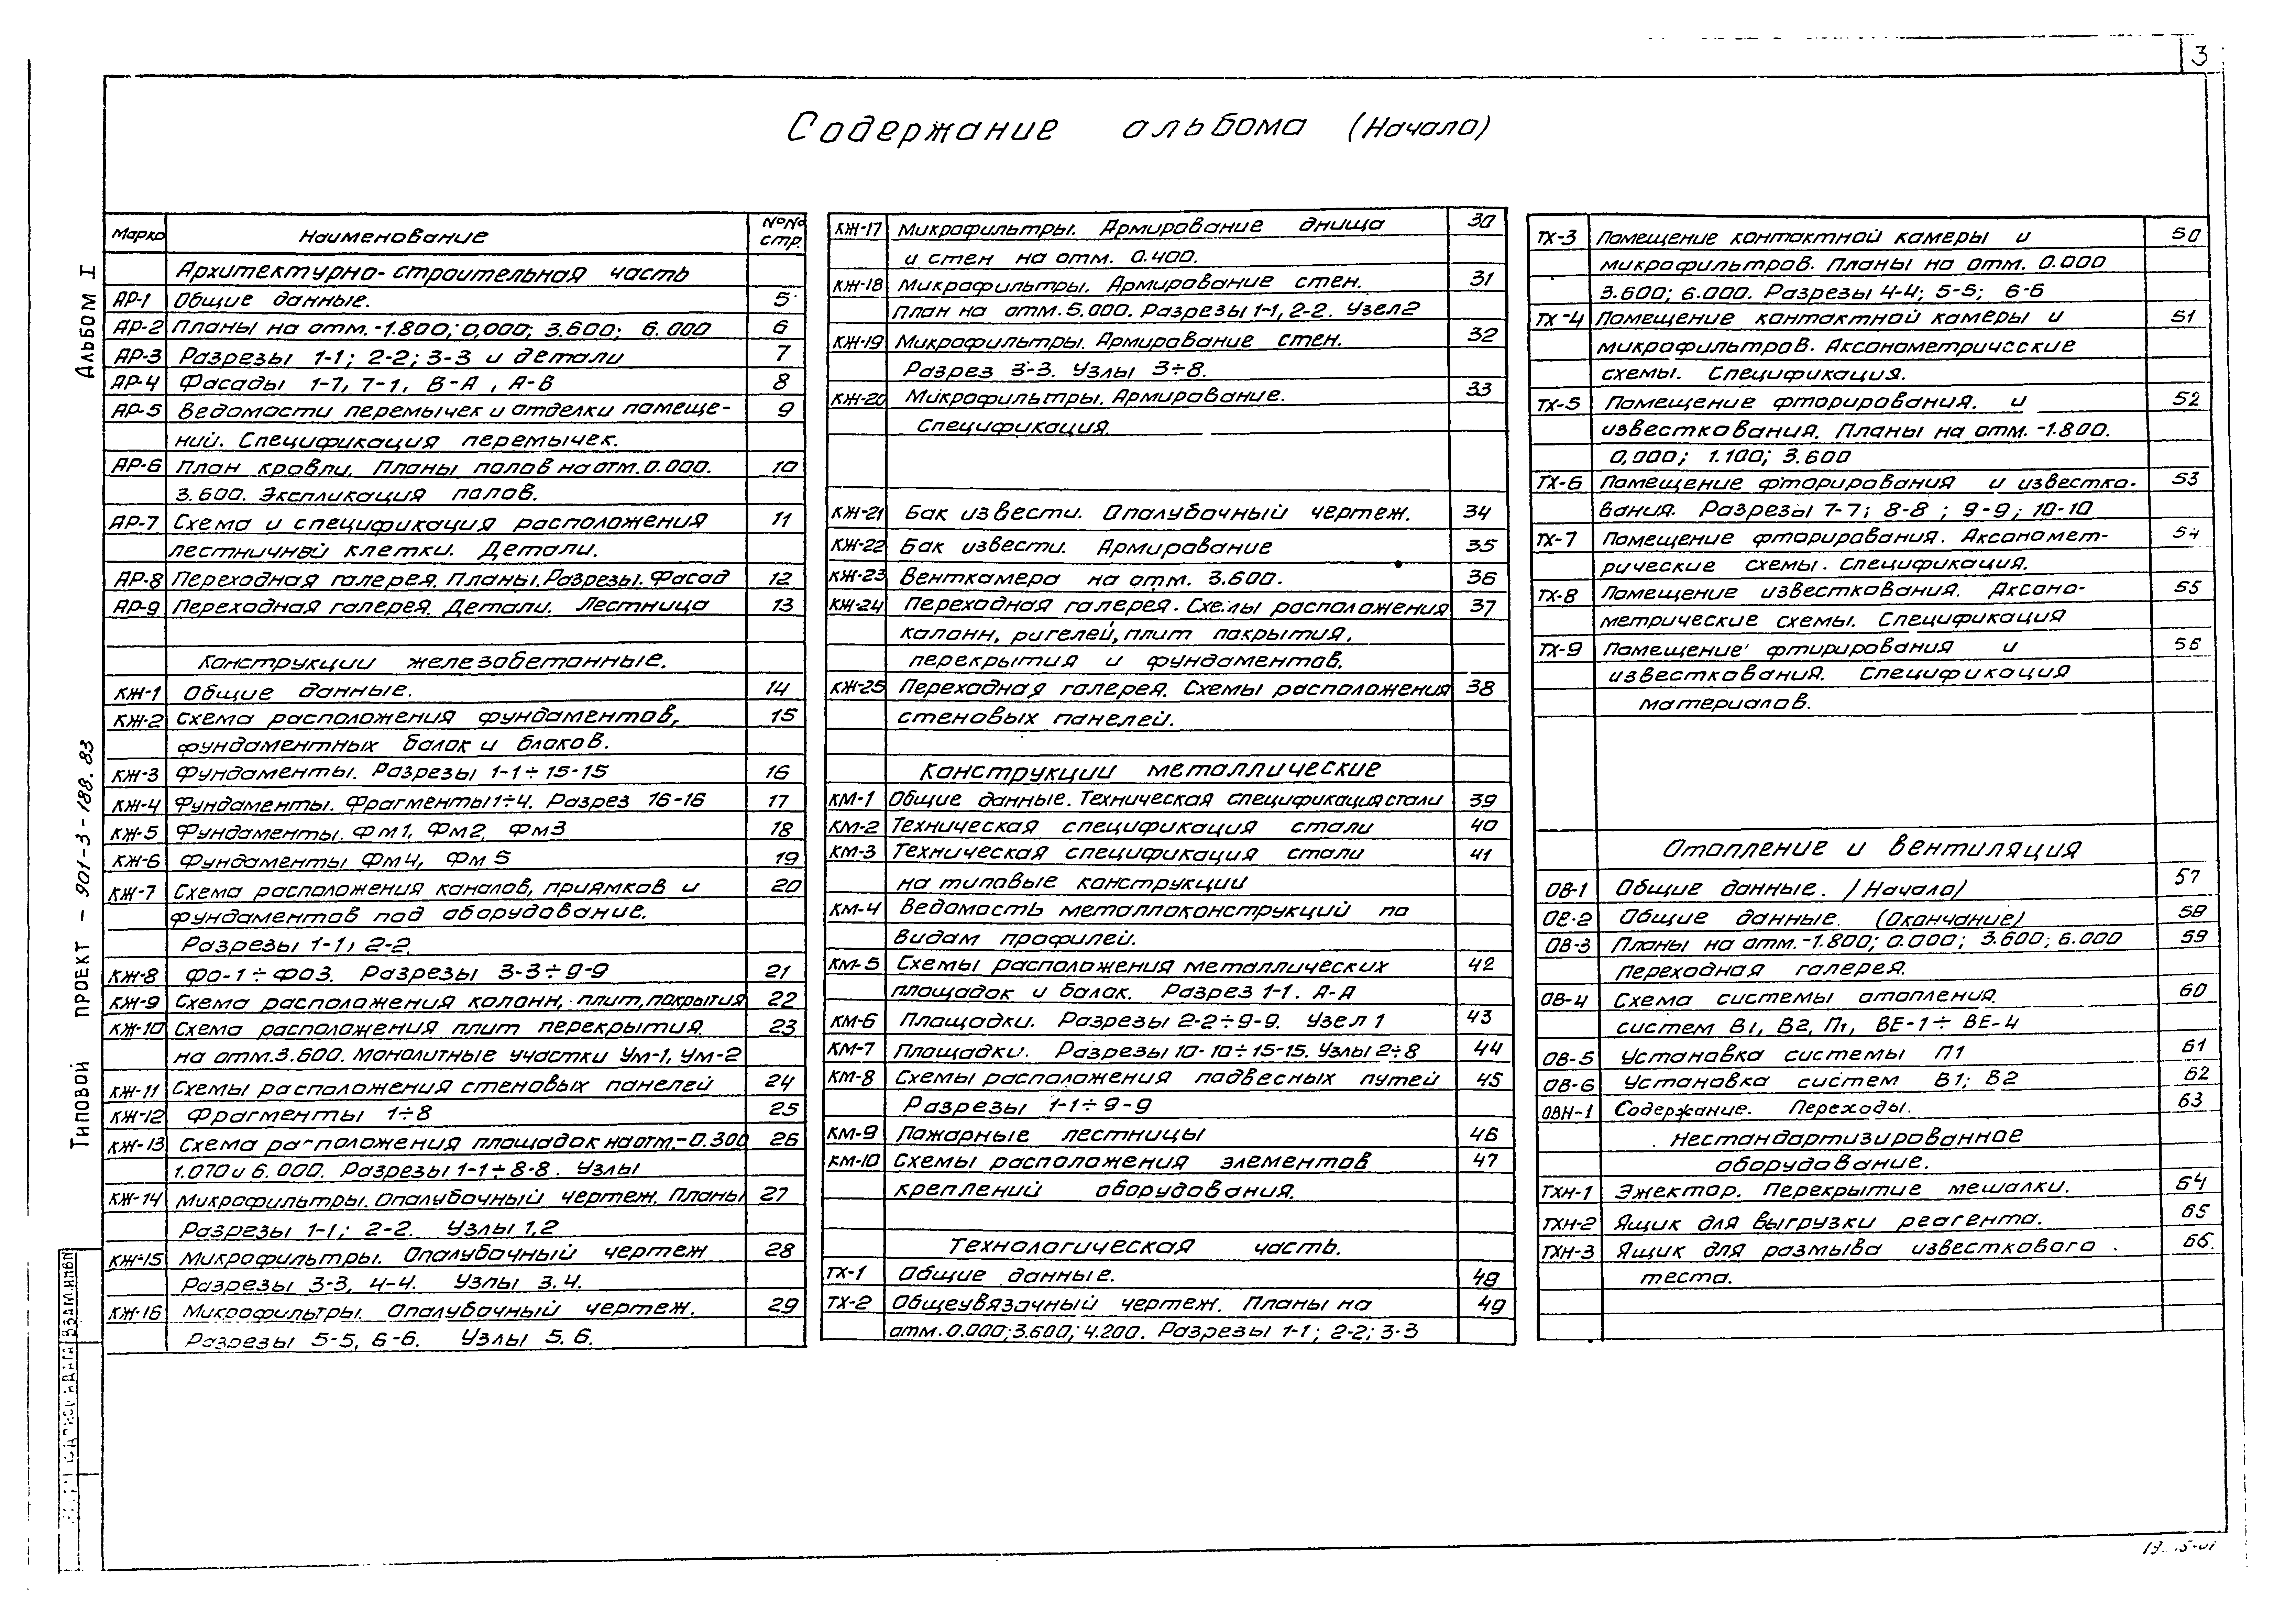 3
Содержание альбома (Начало)
Альбом I
Типовой проект - 901-3-188.83
Марка Наименование №№ стр.
Архитектурно-строительная часть
АР-1 Общие данные. 5
АР-2 Планы на отм. -1.800; 0,000; 3.600; 6.000 6
АР-3 Разрезы 1-1; 2-2; 3-3 и детали 7
АР-4 Фасады 1-7, 7-1, В-А, А-В 8
АР-5 Ведомости перемычек и отделки помеще- 9
ний. Спецификация перемычек.
АР-6 План кровли. Планы полов на отм. 0.000. 10
3.600. Экспликация полов.
АР-7 Схема и спецификация расположения 11
лестничной клетки. Детали.
АР-8 Переходная галерея. Планы. Разрезы. Фасад 12
АР-9 Переходная галерея. Детали. Лестница 13
Конструкции железобетонные.
КЖ-1 Общие данные. 14
КЖ-2 Схема расположения фундаментов, 15
фундаментных балок и блоков.
КЖ-3 Фундаменты. Разрезы 1-1÷15-15 16
КЖ-4 Фундаменты. Фрагменты 1÷4. Разрез 16-16 17
КЖ-5 Фундаменты. Фм1, Фм2, Фм3 18
КЖ-6 Фундаменты Фм4, Фм5 19
КЖ-7 Схема расположения каналов, приямков и 20
фундаментов под оборудование.
Разрезы 1-1, 2-2.
КЖ-8 Фо-1÷Фо3. Разрезы 3-3÷9-9 21
КЖ-9 Схема расположения колонн, плит, покрытия 22
КЖ-10 Схема расположения плит перекрытия 23
на отм. 3.600. Монолитные участки Ум-1, Ум-2
КЖ-11 Схемы расположения стеновых панелей 24
КЖ-12 Фрагменты 1÷8 25
КЖ-13 Схема расположения площадок на отм. -0.300 26
1.070 и 6.000. Разрезы 1-1÷8-8. Узлы
КЖ-14 Микрофильтры. Опалубочный чертеж. Планы 27
Разрезы 1-1; 2-2. Узлы 1,2
КЖ-15 Микрофильтры. Опалубочный чертеж 28
Разрезы 3-3, 4-4. Узлы 3.4.
КЖ-16 Микрофильтры. Опалубочный чертеж. 29
Разрезы 5-5, 6-6. Узлы 5.6.
КЖ-17 Микрофильтры. Армирование днища 30
и стен на отм. 0.400.
КЖ-18 Микрофильтры. Армирование стен. 31
План на отм. 5.000. Разрезы 1-1, 2-2. Узел 2
КЖ-19 Микрофильтры. Армирование стен. 32
Разрез 3-3. Узлы 3÷8.
КЖ-20 Микрофильтры. Армирование. 33
Спецификация.
КЖ-21 Бак извести. Опалубочный чертеж. 34
КЖ-22 Бак извести. Армирование 35
КЖ-23 Венткамера на отм. 3.600. 36
КЖ-24 Переходная галерея. Схемы расположения 37
колонн, ригелей, плит покрытия,
перекрытия и фундаментов.
КЖ-25 Переходная галерея. Схемы расположения 38
стеновых панелей.
Конструкции металлические
КМ-1 Общие данные. Техническая спецификация стали 39
КМ-2 Техническая спецификация стали 40
КМ-3 Техническая спецификация стали 41
на типовые конструкции
КМ-4 Ведомость металлоконструкций по
видам профилей.
КМ-5 Схемы расположения металлических 42
площадок и балок. Разрез 1-1. А-А
КМ-6 Площадки. Разрезы 2-2÷9-9. Узел 1 43
КМ-7 Площадки. Разрезы 10-10÷15-15. Узлы 2÷8 44
КМ-8 Схемы расположения подвесных путей 45
Разрезы 1-1÷9-9
КМ-9 Пожарные лестницы 46
КМ-10 Схемы расположения элементов 47
креплений оборудования.
Технологическая часть.
ТХ-1 Общие данные. 48
ТХ-2 Общеувязочный чертеж. Планы на 49
отм. 0.000; 3.600; 4.200. Разрезы 1-1; 2-2; 3-3
ТХ-3 Помещение контактной камеры и 50
микрофильтров. Планы на отм. 0.000
3.600; 6.000. Разрезы 4-4; 5-5; 6-6
ТХ-4 Помещение контактной камеры и 51
микрофильтров. Аксонометрические
схемы. Спецификация.
ТХ-5 Помещение фторирования. и 52
известкования. Планы на отм. -1.800.
0,000; 1.100; 3.600
ТХ-6 Помещение фторирования и известко- 53
вания. Разрезы 7-7; 8-8; 9-9; 10-10
ТХ-7 Помещение фторирования. Аксономет- 54
рические схемы. Спецификация.
ТХ-8 Помещение известкования. Аксоно- 55
метрические схемы. Спецификация
ТХ-9 Помещение фтирирования и 56
известкования. Спецификация
материалов.
Отопление и вентиляция
ОВ-1 Общие данные. (Начало) 57
ОВ-2 Общие данные. (Окончание) 58
ОВ-3 Планы на отм. -1.800; 0.000; 3.600; 6.000 59
Переходная галерея.
ОВ-4 Схема системы отопления. 60
систем В1, В2, П1, ВЕ-1÷ВЕ-4
ОВ-5 Установка системы П1 61
ОВ-6 Установка систем В1; В2 62
ОВН-1 Содержание. Переходы. 63
Нестандартизированное
оборудование.
ТХН-1 Эжектор. Перекрытие мешалки. 64
ТХН-2 Ящик для выгрузки реагента. 65
ТХН-3 Ящик для размыва известкового 66.
теста.
Взам.инв№